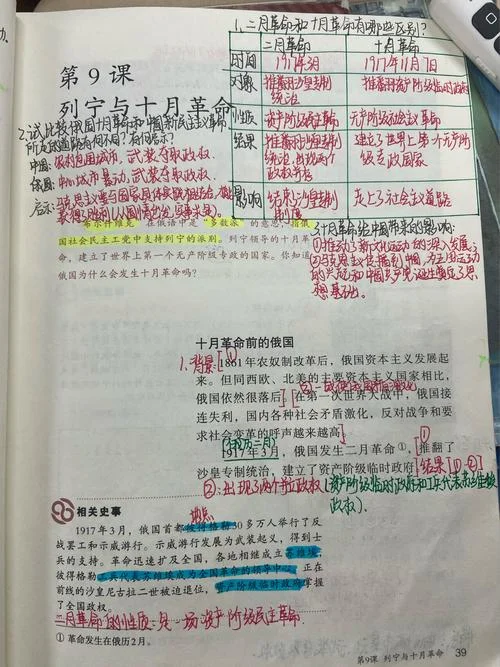 1.二月革命和十月革命有哪些区别?
二月革命 十月革命
时间 1917年3月 1917年11月7日
对象 推翻沙皇专制统治 推翻资产阶级临时政府
性质 资产阶级民主革命 无产阶级社会主义革命
结果 推翻沙皇专制统治,出现两个政权并存 建立了世界上第一个无产阶级专政国家
影响 结束沙皇专制制度 走上了社会主义道路
第9课
列宁与十月革命
2.试比较俄国十月革命和中国新民主主义革命
所走的道路有何不同?有何启示?
中国:农村包围城市,武装夺取政权
俄国:中心城市暴动,武装夺取政权
启示:马克思主义要与国家具体实践相结合,
从国情出发,实事求是)
布尔什维克 在俄语中是“多数派”的意思,指俄
国社会民主工党中支持列宁的派别。列宁领导的十月革
命,建立了世界上第一个无产阶级专政的国家。你知道
俄国为什么会发生十月革命吗?
3.十月革命给中国带来的影响:
①推动了新文化运动的深入发展;
②马克思主义传播到中国,为五四运动
的发起和中国共产党诞生奠定了思
想基础。
十月革命前的俄国
1.背景:[①]
1861年农奴制改革后,俄国资本主义发展起
来。但同西欧、北美的主要资本主义国家相比,
俄国依然很落后。[在第一次世界大战中,俄国接
连失利,国内各种社会矛盾激化,反对战争和要
求社会变革的呼声越来越高]
1917年3月,俄国发生二月革命①,推翻了
沙皇专制统治,建立了资产阶级临时政府 结果[①-②]
②:出现了两个并立政权(资产阶级临时政府和工兵代表苏维埃
政权).
相关史事
地点
1917年3月,俄国首都彼得格勒30多万人举行了反
战罢工和示威游行。示威游行发展为武装起义,得到士
兵的支持。革命迅速扩及全国,各地相继成立苏维埃,
彼得格勒工兵代表苏维埃成为全国革命的领导中心。正在
前线的沙皇尼古拉二世被迫退位,资产阶级临时政府掌握
了全国政权。
二月革命的性质:是一场资产阶级民主革命.
① 革命发生在俄历2月。
第9课 列宁与十月革命 39